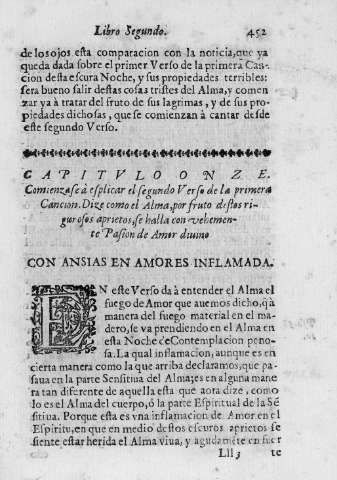 Libro Segundo. 452
de los ojos esta comparacion con la noticia, que ya
queda dada sobre el primer Verso de la primera Can-
cion desta escura Noche, y sus propiedades terribles:
sera bueno salir destas cosas tristes del Alma, y comen
zar ya à tratar del fruto de sus lagrimas, y de sus pro-
piedades dichosas, que se comienzan à cantar desde
este segundo Verso.
CAPITVLO ONZE.
Comienzase à esplicar el segundo Verso de la primera
Cancion. Dize como el Alma, por fruto destos ri-
gurosos aprietos, se halla con vehemen-
te Pasion de Amor divino
CON ANSIAS EN AMORES INFLAMADA.
EN este Verso dà à entender el Alma el
fuego de Amor que auemos dicho, q̃ à
manera del fuego material en el ma-
dero, se va prendiendo en el Alma en
esta Noche de Contemplacion peno-
sa. La qual inflamacion, aunque es en
cierta manera como la que arriba declaramos, que pa-
saua en la parte Sensitiua del Alma; es en alguna mane
ra tan diferente de aquella esta que aora dize, como
lo es el Alma del cuerpo, ò la parte Espiritual de la Sẽ
sitiua. Porque esta es vna inflamacion de Amor en el
Espiritu, en que en medio destos escuros aprietos se
siente estar herida el Alma viua, y agudamẽte en fuer
Lll 3 te